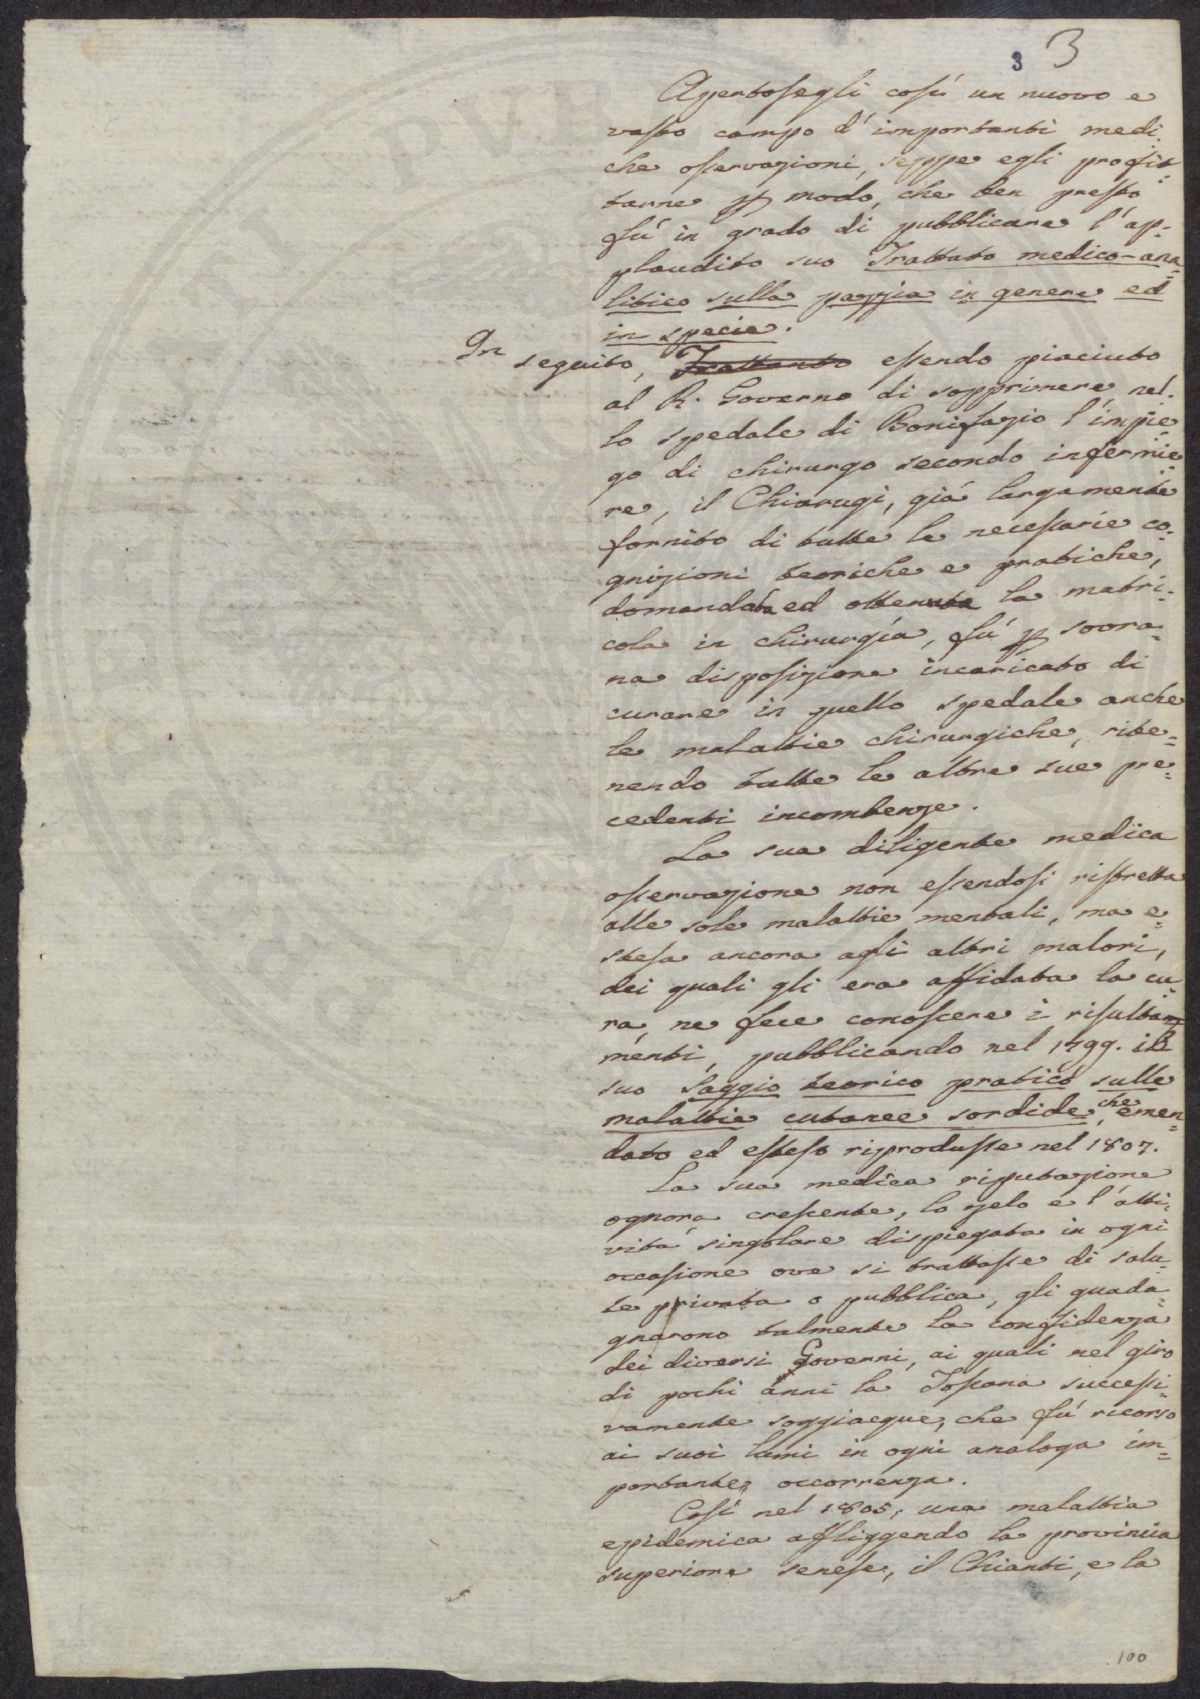 3 3
Apertosegli così un nuovo e
vasto campo d'importanti medi-
che osservazioni, seppe egli profit-
tarne p modo, che ben presto
fú in grado di pubblicare l'ap-
plaudito suo Trattato medico-ana-
litico sulla pazzia in genere ed
in specie.
In seguito, Trattanto essendo piaciuto
al R. Governo di sopprimere nel-
lo spedale di Bonifazio l'impie-
go di chirurgo secondo infermie-
re, il Chiarugi, giá largamente
fornito di tutte le necessarie co-
gnizioni teoriche e pratiche,
domandata ed ottenuta la matri-
cola in chirurgía, fú p sovra-
na disposizione incaricato di
curare in quello spedale anche
le malattie chirurgiche, rite-
nendo tutte le altre sue pre-
cedenti incombenze.
La sua diligente medica
osservazione non essendosi ristretta
alle sole malattie mentali, ma e-
stesa ancora agli altri malori,
dei quali gli era affidata la cu-
ra, ne fece conoscere i risulta-
menti, pubblicando nel 1799. il
suo Saggio teorico pratico sulle
malattie cutanee sordide, che emen-
dato ed esteso riprodusse nel 1807.
La sua medica riputazione
ognora crescente, lo zelo e l'atti-
vitá singolare dispiegata in ogni
occasione ove si trattasse di salu-
te privata o pubblica, gli guada-
gnarono talmente la confidenza
dei diversi Governi, ai quali nel giro
di pochi anni la Toscana successi-
vamente soggiacque, che fú ricorso
ai suoi lumi in ogni analoga im-
portante occorrenza.
Così nel 1805, una malattia
epidemica affliggendo la provincia
superiore senese, il Chianti, e la
100